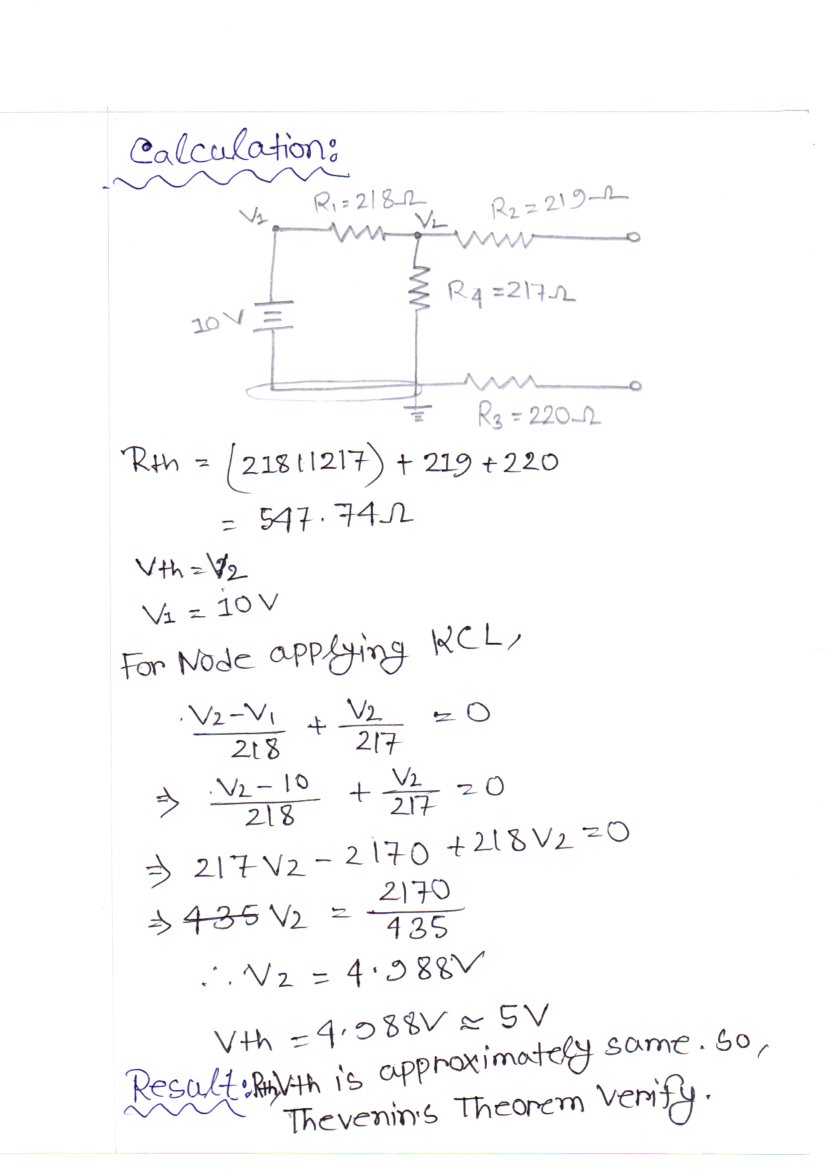 Calculation:
V1
R1=218Ω
V2
R2=219Ω
R4=217Ω
10V
R3=220Ω
Rth = (218||217) + 219 + 220
= 547.74Ω
Vth = V2
V1 = 10V
For Node applying KCL,
V2-V1/218 + V2/217 = 0
⇒ V2-10/218 + V2/217 = 0
⇒ 217V2 - 2170 + 218V2 = 0
⇒ 435 V2 = 2170/435
∴ V2 = 4.988V
Vth = 4.988V ≈ 5V
Result: Rth, Vth is approximately same. So,
Thevenin's Theorem verify.